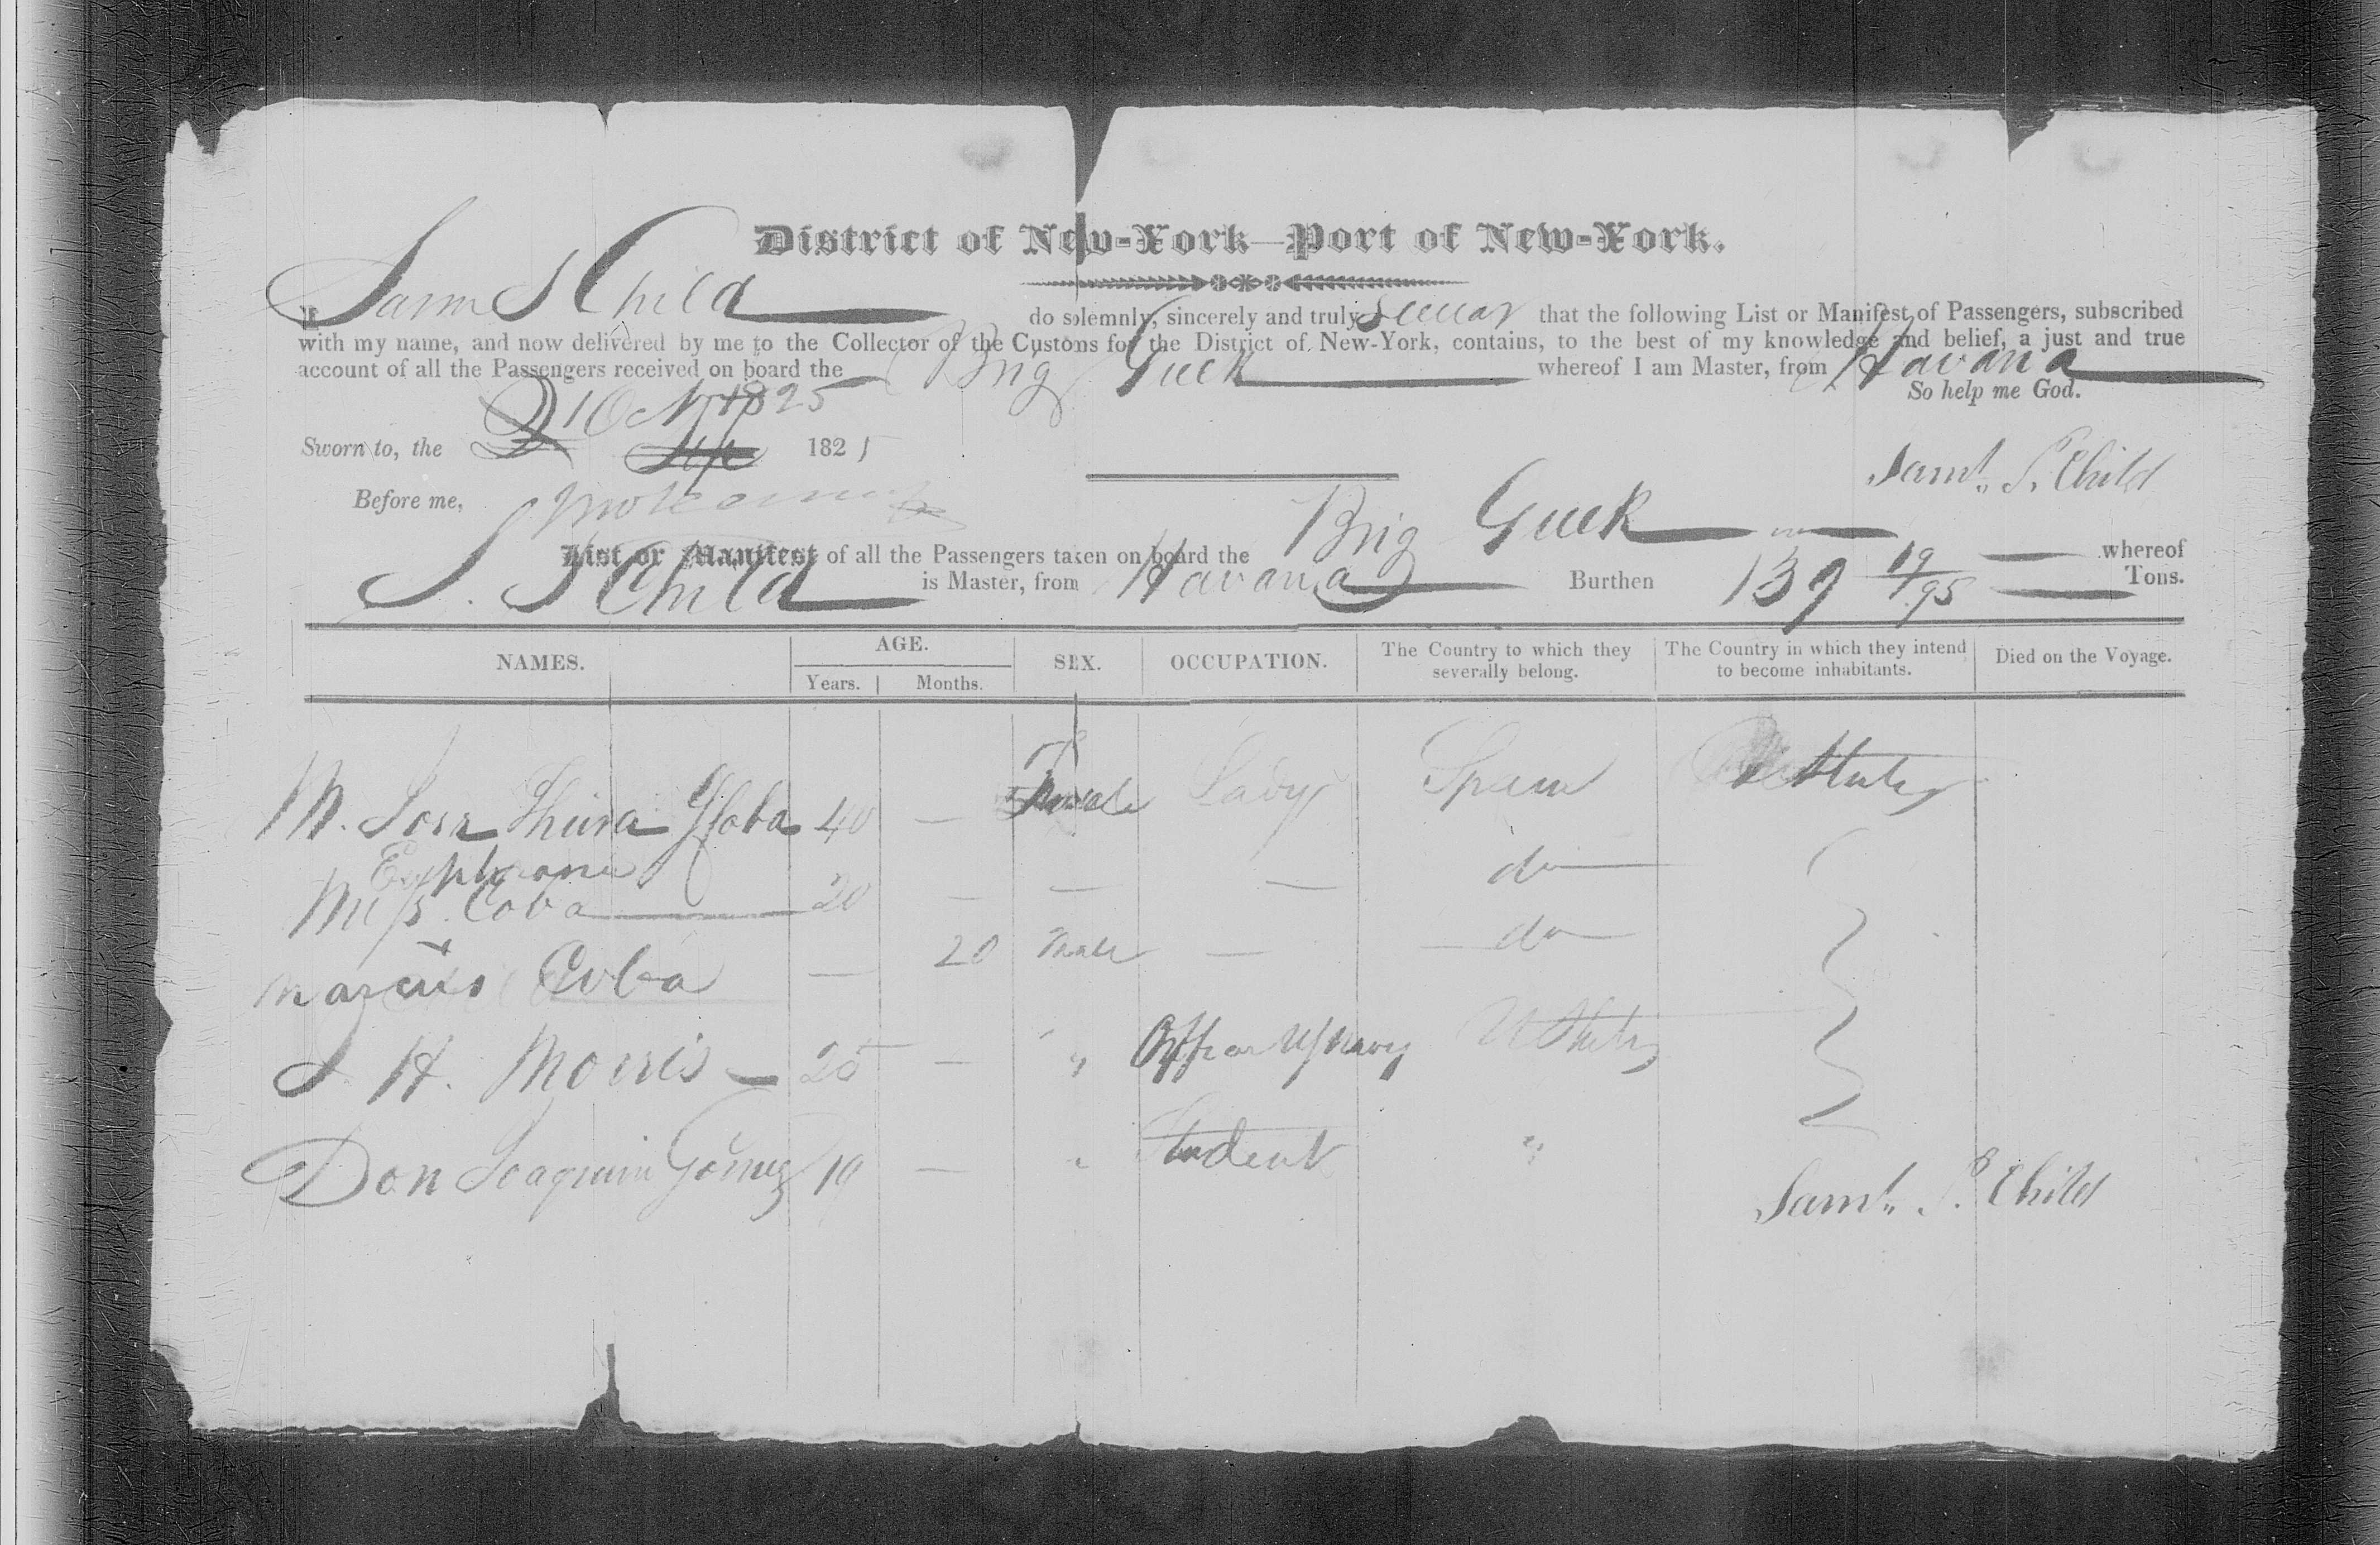 District of New-York—Port of New-York.
I, Sam S Child do solemnly, sincerely and truly swear that the following List or Manifest of Passengers, subscribed
with my name, and now delivered by me to the Collector of the Customs for the District of New-York, contains, to the best of my knowledge and belief, a just and true
account of all the Passengers received on board the Brig whereof I am Master, from Havana
So help me God.
1825
Sworn to, the 1825
Saml. S. Child
Before me,
List or Manifest of all the Passengers taken on board the Brig whereof
S. S Child is Master, from Havana Burthen 139 19/95 Tons.
NAMES. AGE. SEX. OCCUPATION. The Country to which they severally belong. The Country in which they intend to become inhabitants. Died on the Voyage.
Years. Months.
M. 40 — Female Lady Spain U States
Miss Coba 20 — — — do
Marcus Coba — 20 Male — do
H. Morris 25 — " Officer Navy U States
Don Joaquin Gomez 19 — " Student "
Saml. S. Child